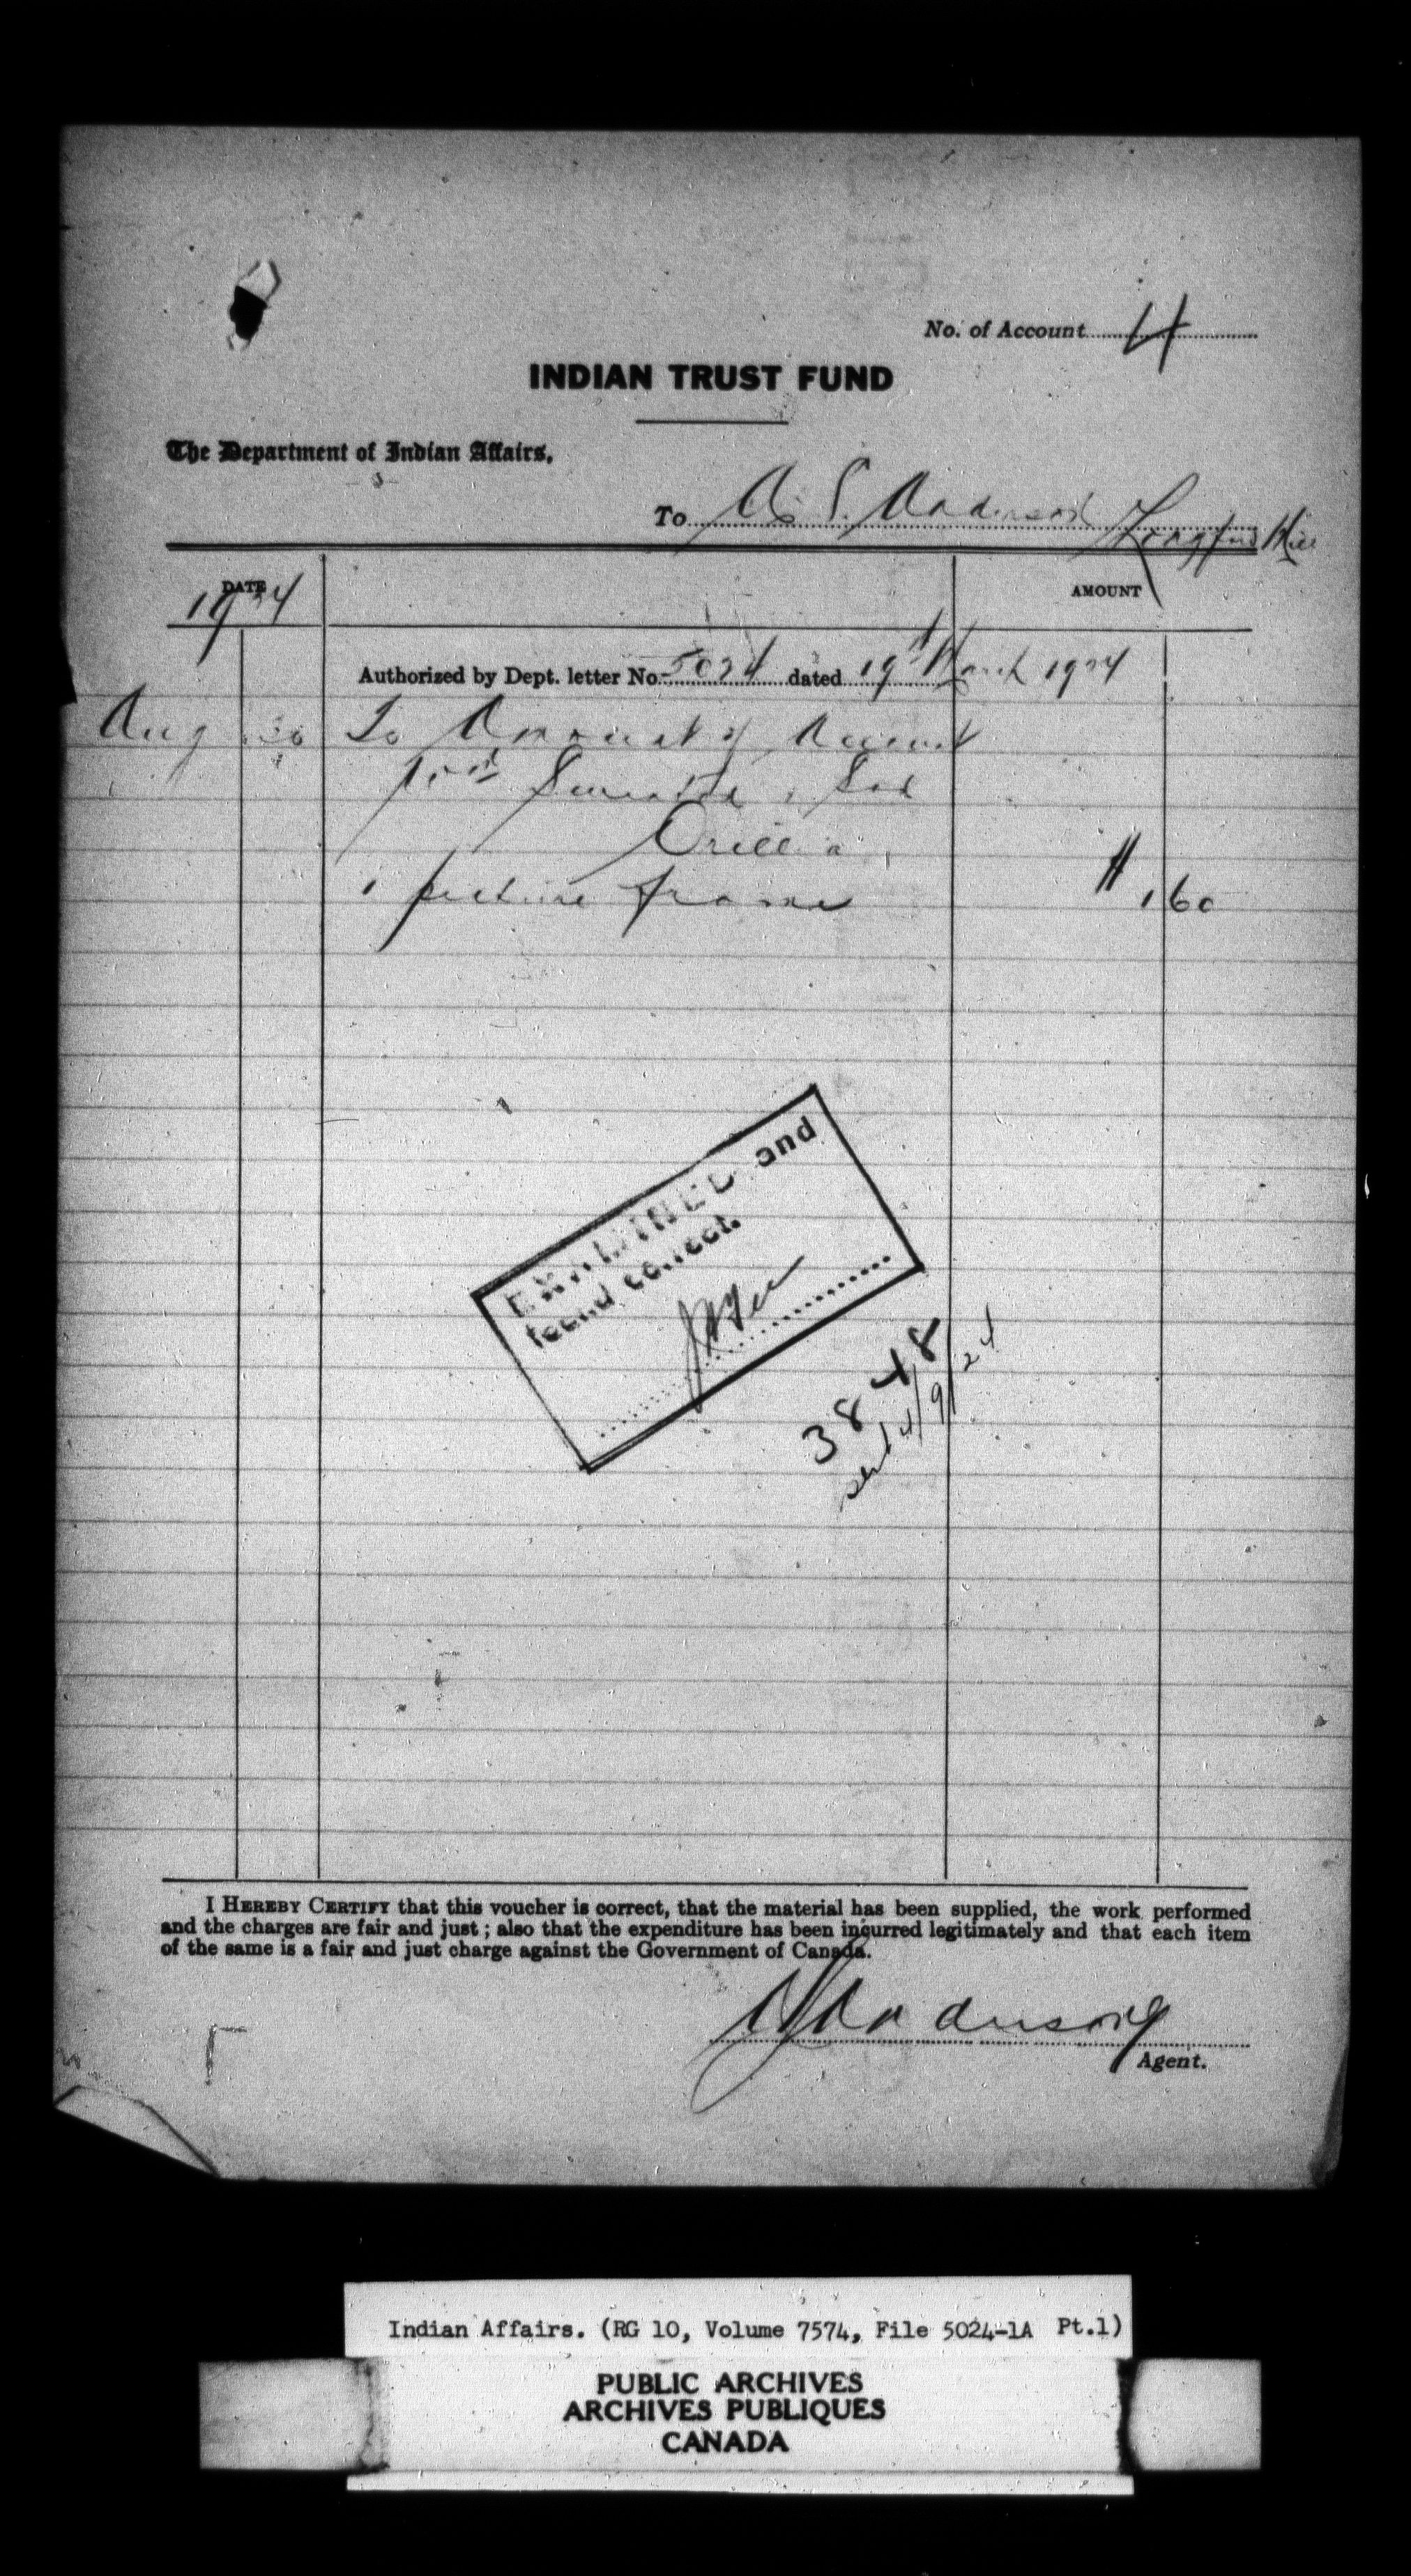 No. of Account 4
INDIAN TRUST FUND
The Department of Indian Affairs,
To A. S. Anderson Longford Mills
DATE AMOUNT
1924
Authorized by Dept. letter No. 5024 dated 19th March 1924
Aug 30 To Amount of Account
Orillia
1 picture frame $1 60
EXAMINED and
found correct.
3848
4/9/24
I HEREBY CERTIFY that this voucher is correct, that the material has been supplied, the work performed
and the charges are fair and just ; also that the expenditure has been incurred legitimately and that each item
of the same is a fair and just charge against the Government of Canada.
A S Anderson
Agent.
Indian Affairs. (RG 10, Volume 7574, File 5024-1A Pt.1)
PUBLIC ARCHIVES
ARCHIVES PUBLIQUES
CANADA